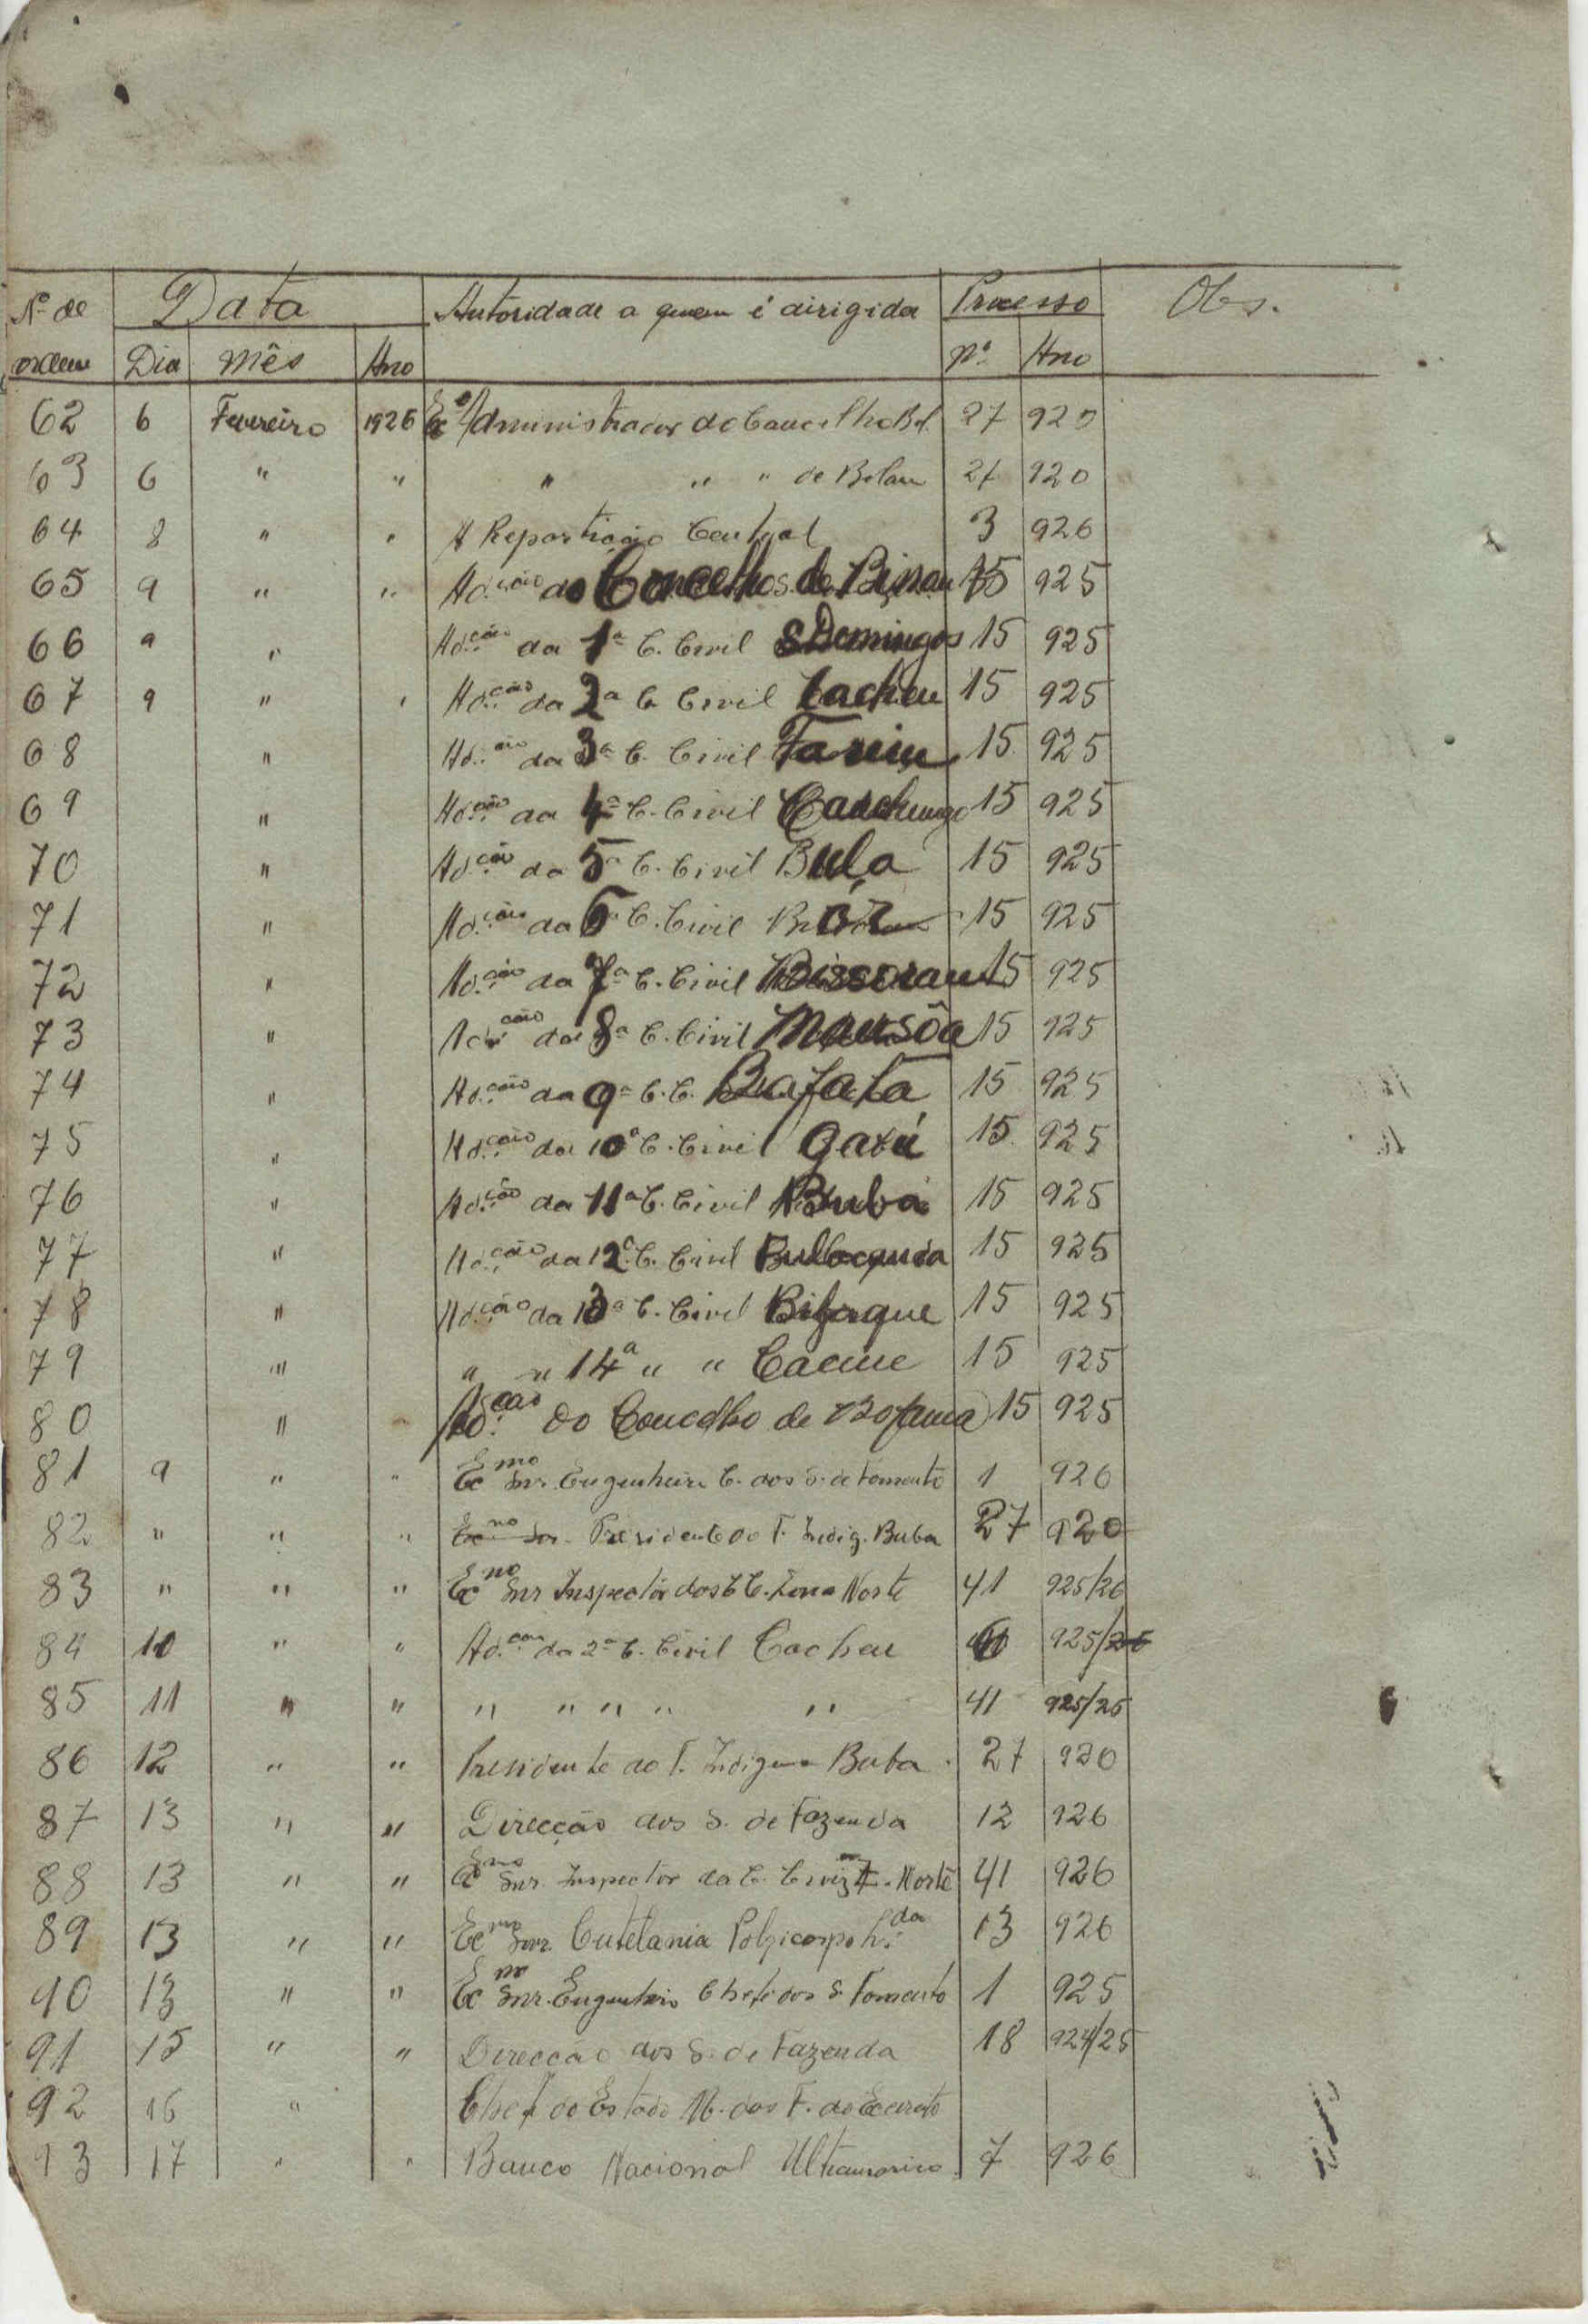 Nº de Data Autoridade a quem é dirigida Processo Obs.
ordem Dia Mês Ano Nº Ano
62 6 Fevereiro 1926 Administrador do Concelho Bol. 27 920
63 6 " " " " " de Bolam 27 920
64 8 " " A Repartição Central 3 926
65 9 " " Ad.ção do Concelhos de Bissau 15 925
66 9 " Ad.ção da 1ª C. Civil S Domingos 15 925
67 9 " " Ad.ção da 2ª C. Civil Cacheu 15 925
68 " Ad.ção da 3ª C. Civil Farim 15 925
69 " Ad.ção da 4ª C. Civil Canchungo 15 925
70 " Ad.ção da 5ª C. Civil Bula 15 925
71 " Ad.ção da 6ª C. Civil 15 925
72 " Ad.ção da 7ª C. Civil Bissoram 15 925
73 " Ad.ção da 8ª C. Civil Mansôa 15 925
74 " Ad.ção da 9ª C. C. Bafatá 15 925
75 " Ad.ção da 10ª C. Civil Gabú 15 925
76 " Ad.ção da 11ª C. Civil Buba 15 925
77 " Ad.ção da 12ª C. Civil 15 925
78 " Ad.ção da 13ª C. Civil 15 925
79 " " " 14ª " " Cacine 15 925
80 " Ad.ção do Concelho de Bolama 15 925
81 9 " " Ecmo Snr. Engenheiro C. dos S. de Fomento 1 926
82 " " " Ecmo Snr. Presidente do T. Indig. Buba 27 920
83 " " " Ecmo Snr Inspector das C C. Zona Norte 41 925/26
84 10 " " Ad.ção da 2ª C. Civil Cacheu 925/26
85 11 " " " " " " " 41 925/26
86 12 " " Presidente do T. Indigena Buba 27 920
87 13 " " Direcção dos S. de Fazenda 12 926
88 13 " " Ecmo Snr. Inspector da C. Civis Z. Norte 41 926
89 13 " " Ecmo Snr. Cutelaria Polycarpo L.da 13 926
90 13 " " Ecmo Snr. Engenheiro Chefe dos S. Fomento 1 925
91 15 " " Direcção dos S. de Fazenda 18 924/25
92 16 " Chefe do Estado M. das F. do Exercito
93 17 " " Banco Nacional Ultramarino 7 926